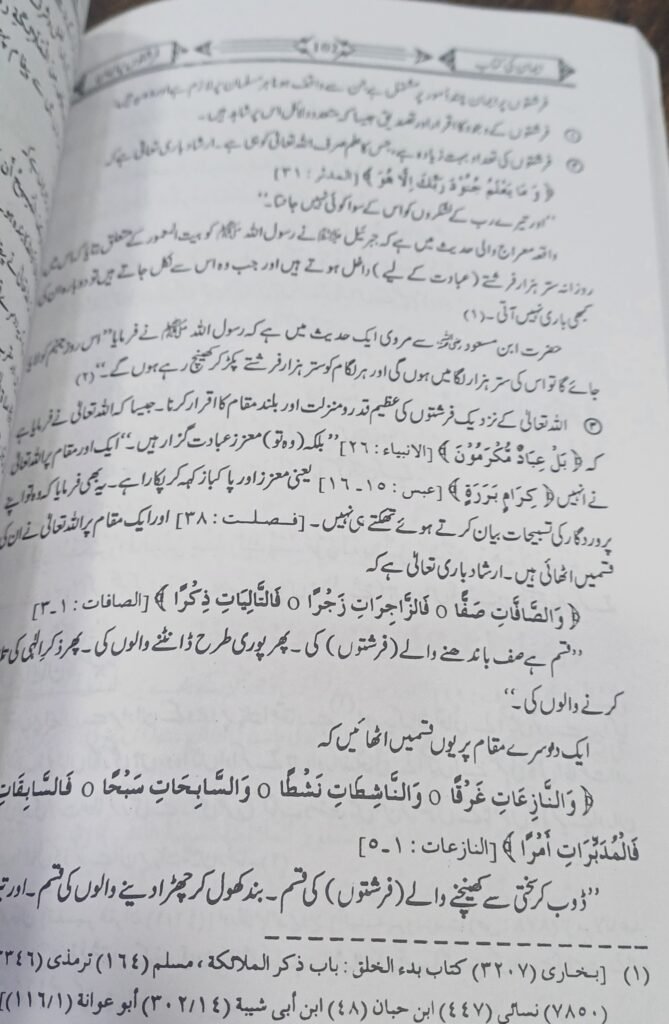 ایمان کی کتاب
فرشتوں پر ایمان چند امور پر مشتمل ہے جن سے واقف ہونا ہر مسلمان پر لازم ہے اور وہ یہ ہیں:
① فرشتوں کے وجود کا اقرار اور تصدیق جیسا کہ متعدد دلائل اس پر شاہد ہیں۔
② فرشتوں کی تعداد بہت زیادہ ہے، جس کا علم صرف اللہ تعالیٰ کو ہی ہے۔ ارشاد باری تعالیٰ ہے کہ
﴿ وَمَا يَعْلَمُ جُنُوْدَ رَبِّكَ إِلَّا هُوَ ﴾ [المدثر : ٣١]
"اور تیرے رب کے لشکروں کو اس کے سوا کوئی نہیں جانتا۔"
واقعہ معراج والی حدیث میں ہے کہ جبرئیل علیہ السلام نے رسول اللہ ﷺ کو بیت المعمور کے متعلق بتایا کہ اس میں
روزانہ ستر ہزار فرشتے (عبادت کے لیے) داخل ہوتے ہیں اور جب وہ اس سے نکل جاتے ہیں تو دوبارہ ان کی
کبھی باری نہیں آتی۔ (۱)
حضرت ابن مسعود رضی اللہ عنہ سے مروی ایک حدیث میں ہے کہ رسول اللہ ﷺ نے فرمایا "اس روز جہنم کو لایا
جائے گا تو اس کی ستر ہزار لگامیں ہوں گی اور ہر لگام کو ستر ہزار فرشتے پکڑ کر کھینچ رہے ہوں گے۔" (۲)
③ اللہ تعالیٰ کے نزدیک فرشتوں کی عظیم قدر و منزلت اور بلند مقام کا اقرار کرنا۔ جیسا کہ اللہ تعالیٰ نے فرمایا ہے
کہ ﴿ بَلْ عِبَادٌ مُّكْرَمُوْنَ ﴾ [الانبیاء : ٢٦] "بلکہ (وہ تو) معزز عبادت گزار ہیں۔" ایک اور مقام پر اللہ تعالیٰ
نے انہیں ﴿ كِرَامٍ بَرَرَةٍ ﴾ [عبس : ١٥-١٦] یعنی معزز اور پاکباز کہہ کر پکارا ہے۔ یہ بھی فرمایا کہ وہ تو اپنے
پروردگار کی تسبیحات بیان کرتے ہوئے تھکتے ہی نہیں۔ [فصلت : ٣٨] اور ایک مقام پر اللہ تعالیٰ نے ان کی
قسمیں اٹھائی ہیں۔ ارشاد باری تعالیٰ ہے کہ
﴿ وَالصَّافَّاتِ صَفًّا ٥ فَالزَّاجِرَاتِ زَجْرًا ٥ فَالتَّالِيَاتِ ذِكْرًا ﴾ [الصافات : ١-٣]
"قسم ہے صف باندھنے والے (فرشتوں) کی۔ پھر پوری طرح ڈانٹنے والوں کی۔ پھر ذکر الٰہی کی
کرنے والوں کی۔"
ایک دوسرے مقام پر یوں قسمیں اٹھائیں کہ
﴿ وَالنَّازِعَاتِ غَرْقًا ٥ وَالنَّاشِطَاتِ نَشْطًا ٥ وَالسَّابِحَاتِ سَبْحًا ٥ فَالسَّابِقَاتِ
فَالْمُدَبِّرَاتِ أَمْرًا ﴾ [النازعات : ١-٥]
"ڈوب کر سختی سے کھینچنے والے (فرشتوں) کی قسم۔ بند کھول کر چھڑا دینے والوں کی قسم۔ اور
(١) [بخاری (٣٢٠٧) کتاب بدء الخلق : باب ذکر الملائکة ، مسلم (١٦٤) ترمذی (٣٣٤٦
(٧٨٥٠) نسائی (٤٤٧) ابن حبان (٤٨) ابن أبی شیبة (٣٠٢/١٤) أبو عوانة (١١٦/١)]